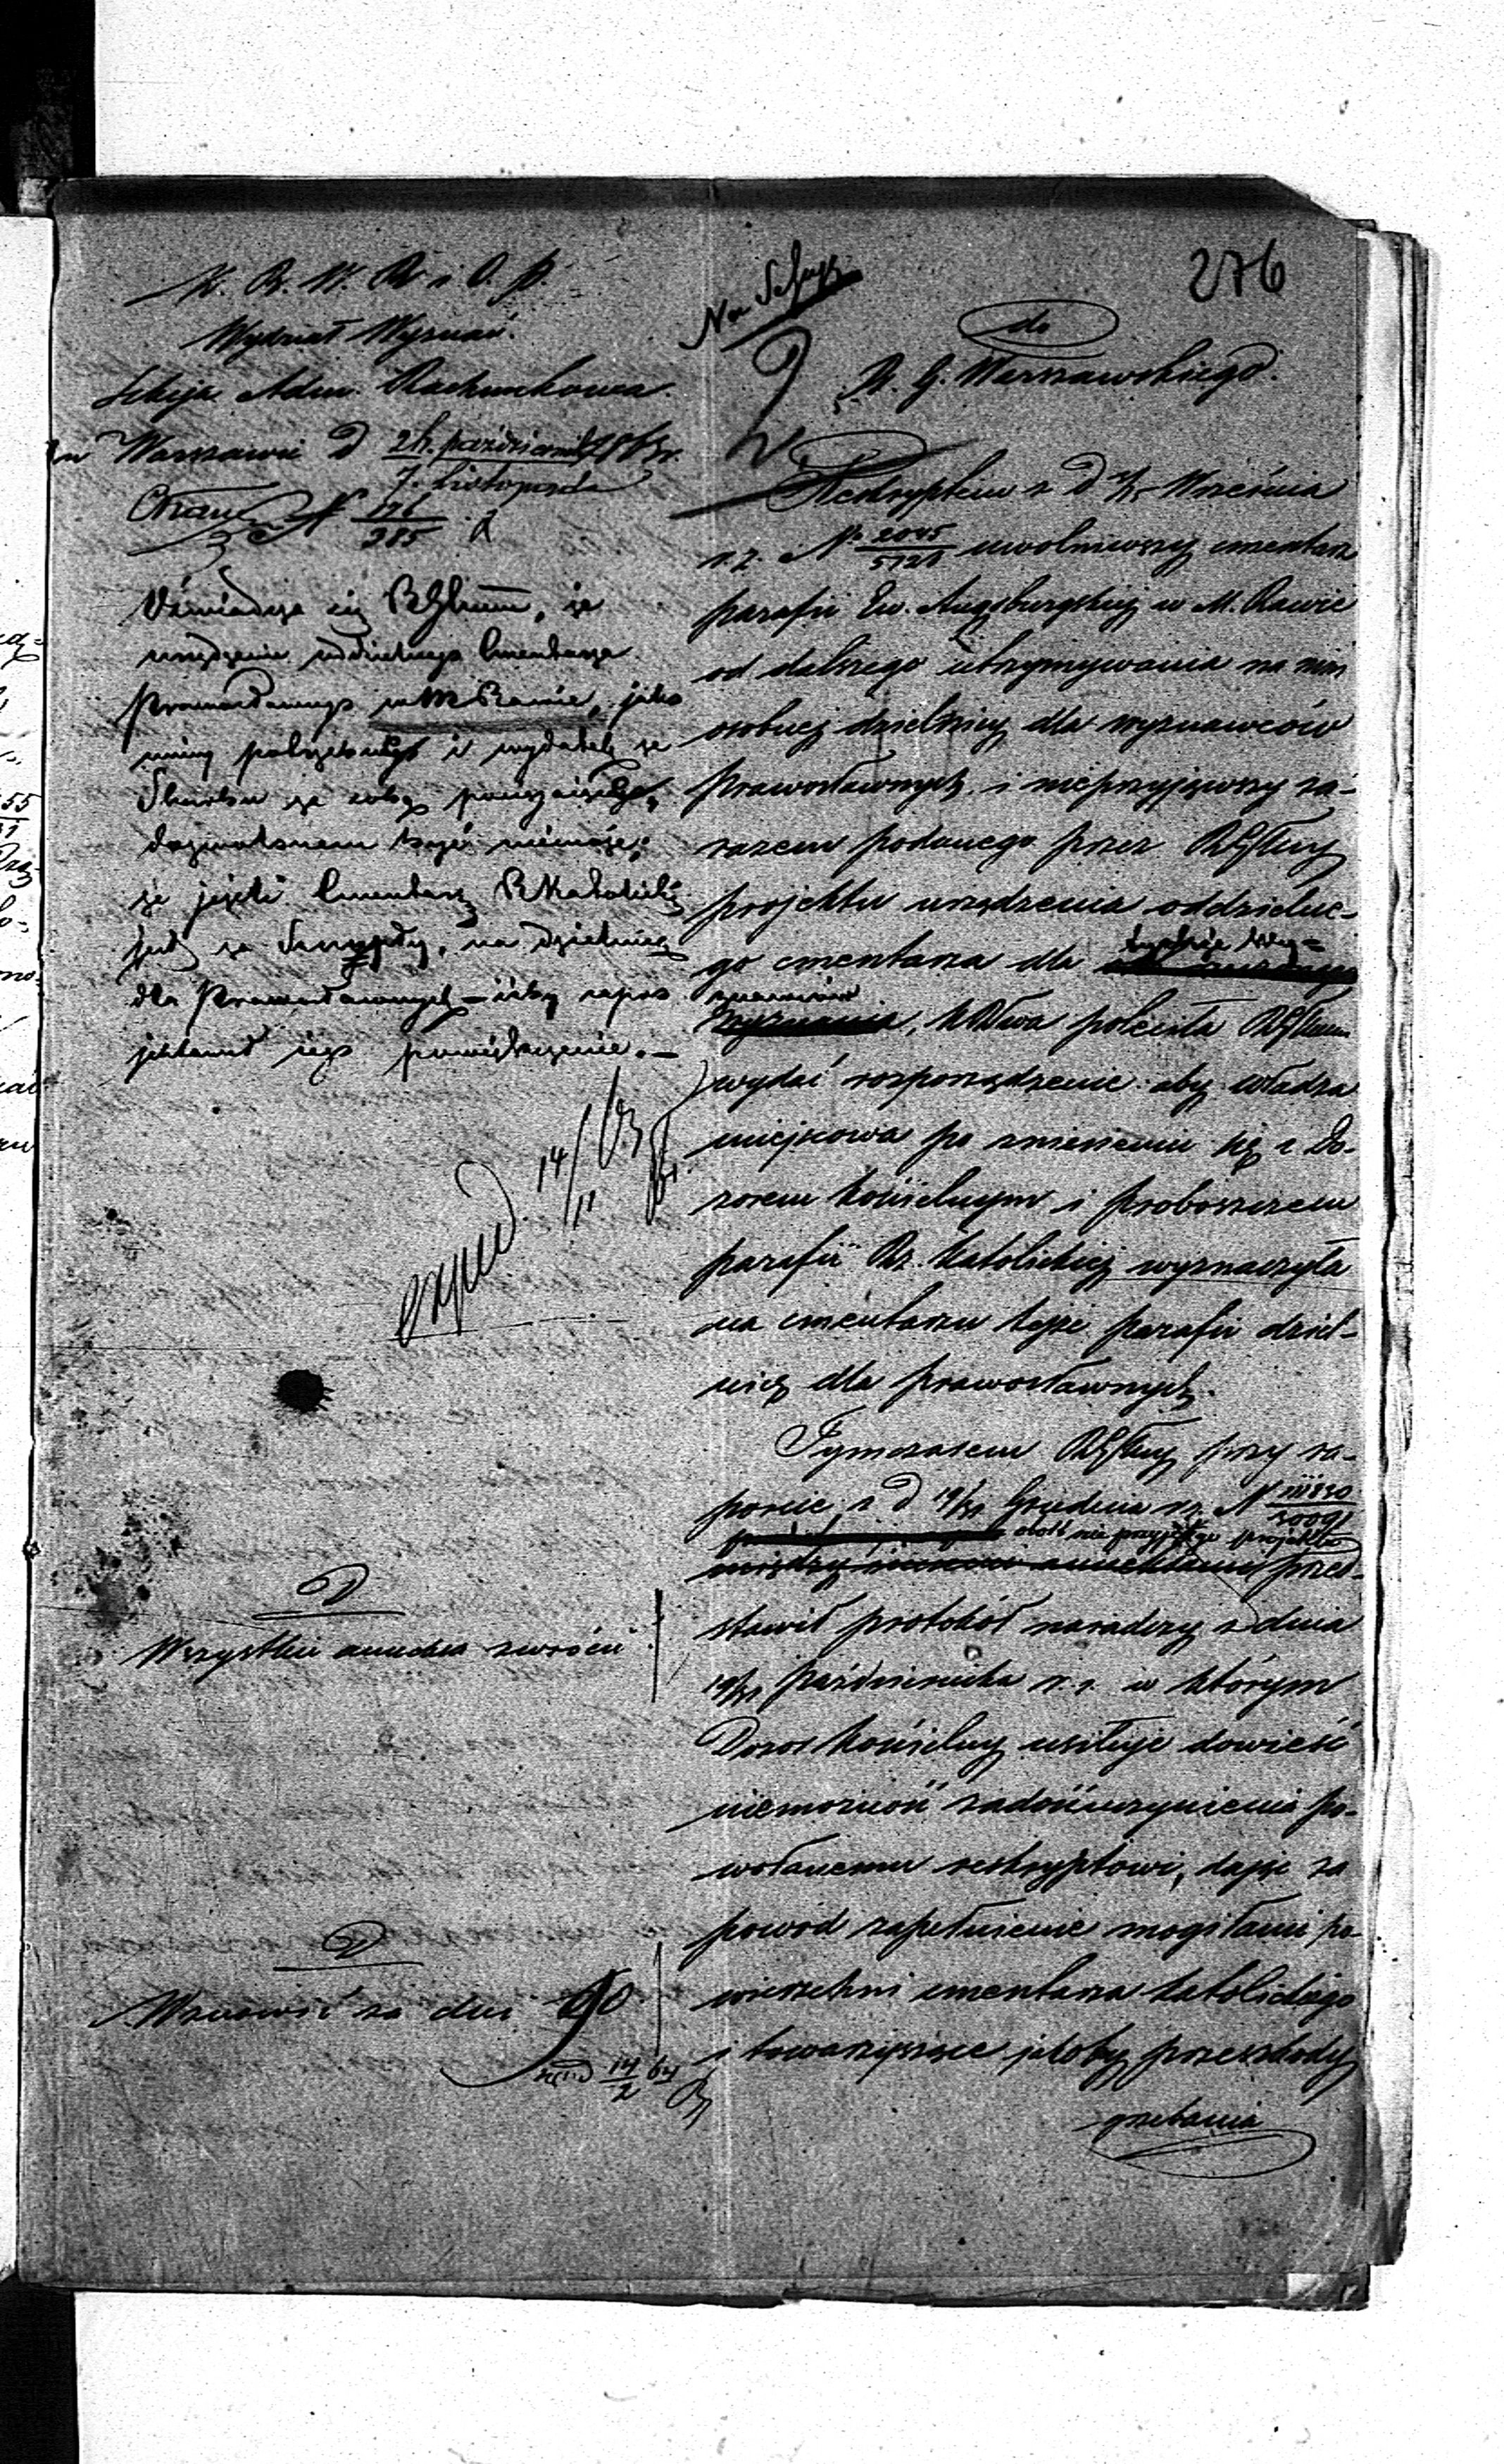 276
K. R. W. R. i O. P.
Wydział Wyznań.
Sekcja Adm. Rachunkowa.
w Warszawie D 26. październik 1863 r.
7. Listopada
N 176
385
Uświadcza się RGlnum, że
urządzenie oddzielnego Cmentarza
Prawosławnego w M Rawie, jako
mniej potrzebnego i wydatek ze
Skarbu za sobą pociągający,
dozwolonem być niemoże;
że jeżeli Cmentarz RKatolicki
jest za szczupły, na dzielnicę
dla Prawosławnych – iżby zapro
jektował jego powiększenie. –
exped. 14/11 63
D
Wszystkie annexa zwrócić
D
Wznowić za dni 90
14/2 64
do
R. G. Warszawskiego.
Reskryptem z D Września
r. z. No 2045/5728 uwolniwszy cmentarz
parafii Ew. Augsburgskiej w M. Rawie
od dalszego utrzymywania na nim
osobnej dzielnicy dla wyznawców
Prawosławnych i nieprzyjąwszy za-
razem podanego przez RGlny
projektu urządzenia oddzielne-
go cmentarza dla tychże Wy-
znawców
wyznania, KRwa poleciła RGlnum
wydać rozporządzenie aby władza
miejscowa po zniesieniu się z Do-
zorem Kościelnym i proboszczem
parafii Rz. Katolickiej wyznaczyła
na cmentarzu tejże parafii dziel-
nicę dla prawosławnych.
Tymczasem RGlny przy ra-
porcie z d 19/31 Grudnia r. z. N
obok nie przyjętego projektu
między innemi annexami przed-
stawił protokół narady z dnia
19/31 Października r. z. w którym
Dozór Kościelny usiłuje dowieść
niemożność zadośćuczynienia po-
wołanemu reskryptowi, dając za
powód zapełnienie mogiłami po-
wierzchni cmentarza katolickiego
i towarzyszące jakoby przeszkody
grzebania